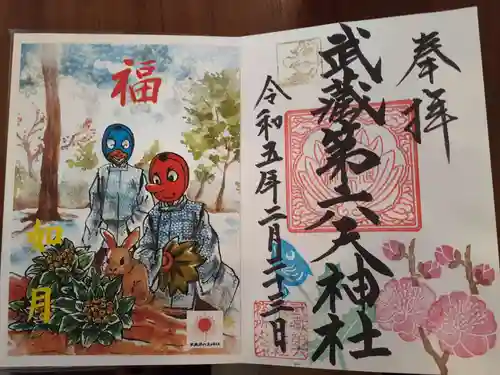 奉拝
武蔵第六天神社
令和五年二月二十三日
福
如月